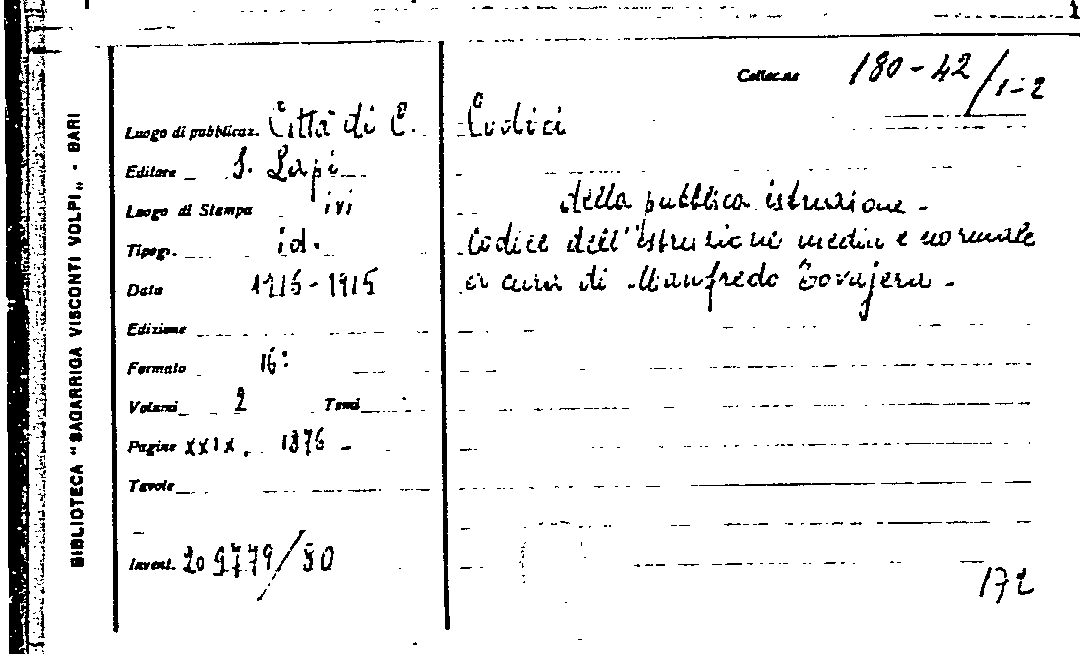 BIBLIOTECA "SAGARRIGA VISCONTI VOLPI„ - BARI
Collocaz. 180-42/1-2
Luogo di pubblicaz. Città di C.
Editore S. Lapi
Luogo di Stampa ivi
Tipogr. id.
Data 1915-1915
Edizione
Formato 16:
Volumi 2 Tomi
Pagine XXIX. 1376 -
Tavole
Invent. 209779/80
Codici
della pubblica istruzione -
Codice dell'istruzione media e normale
a cura di Manfredo Tovajera -
172